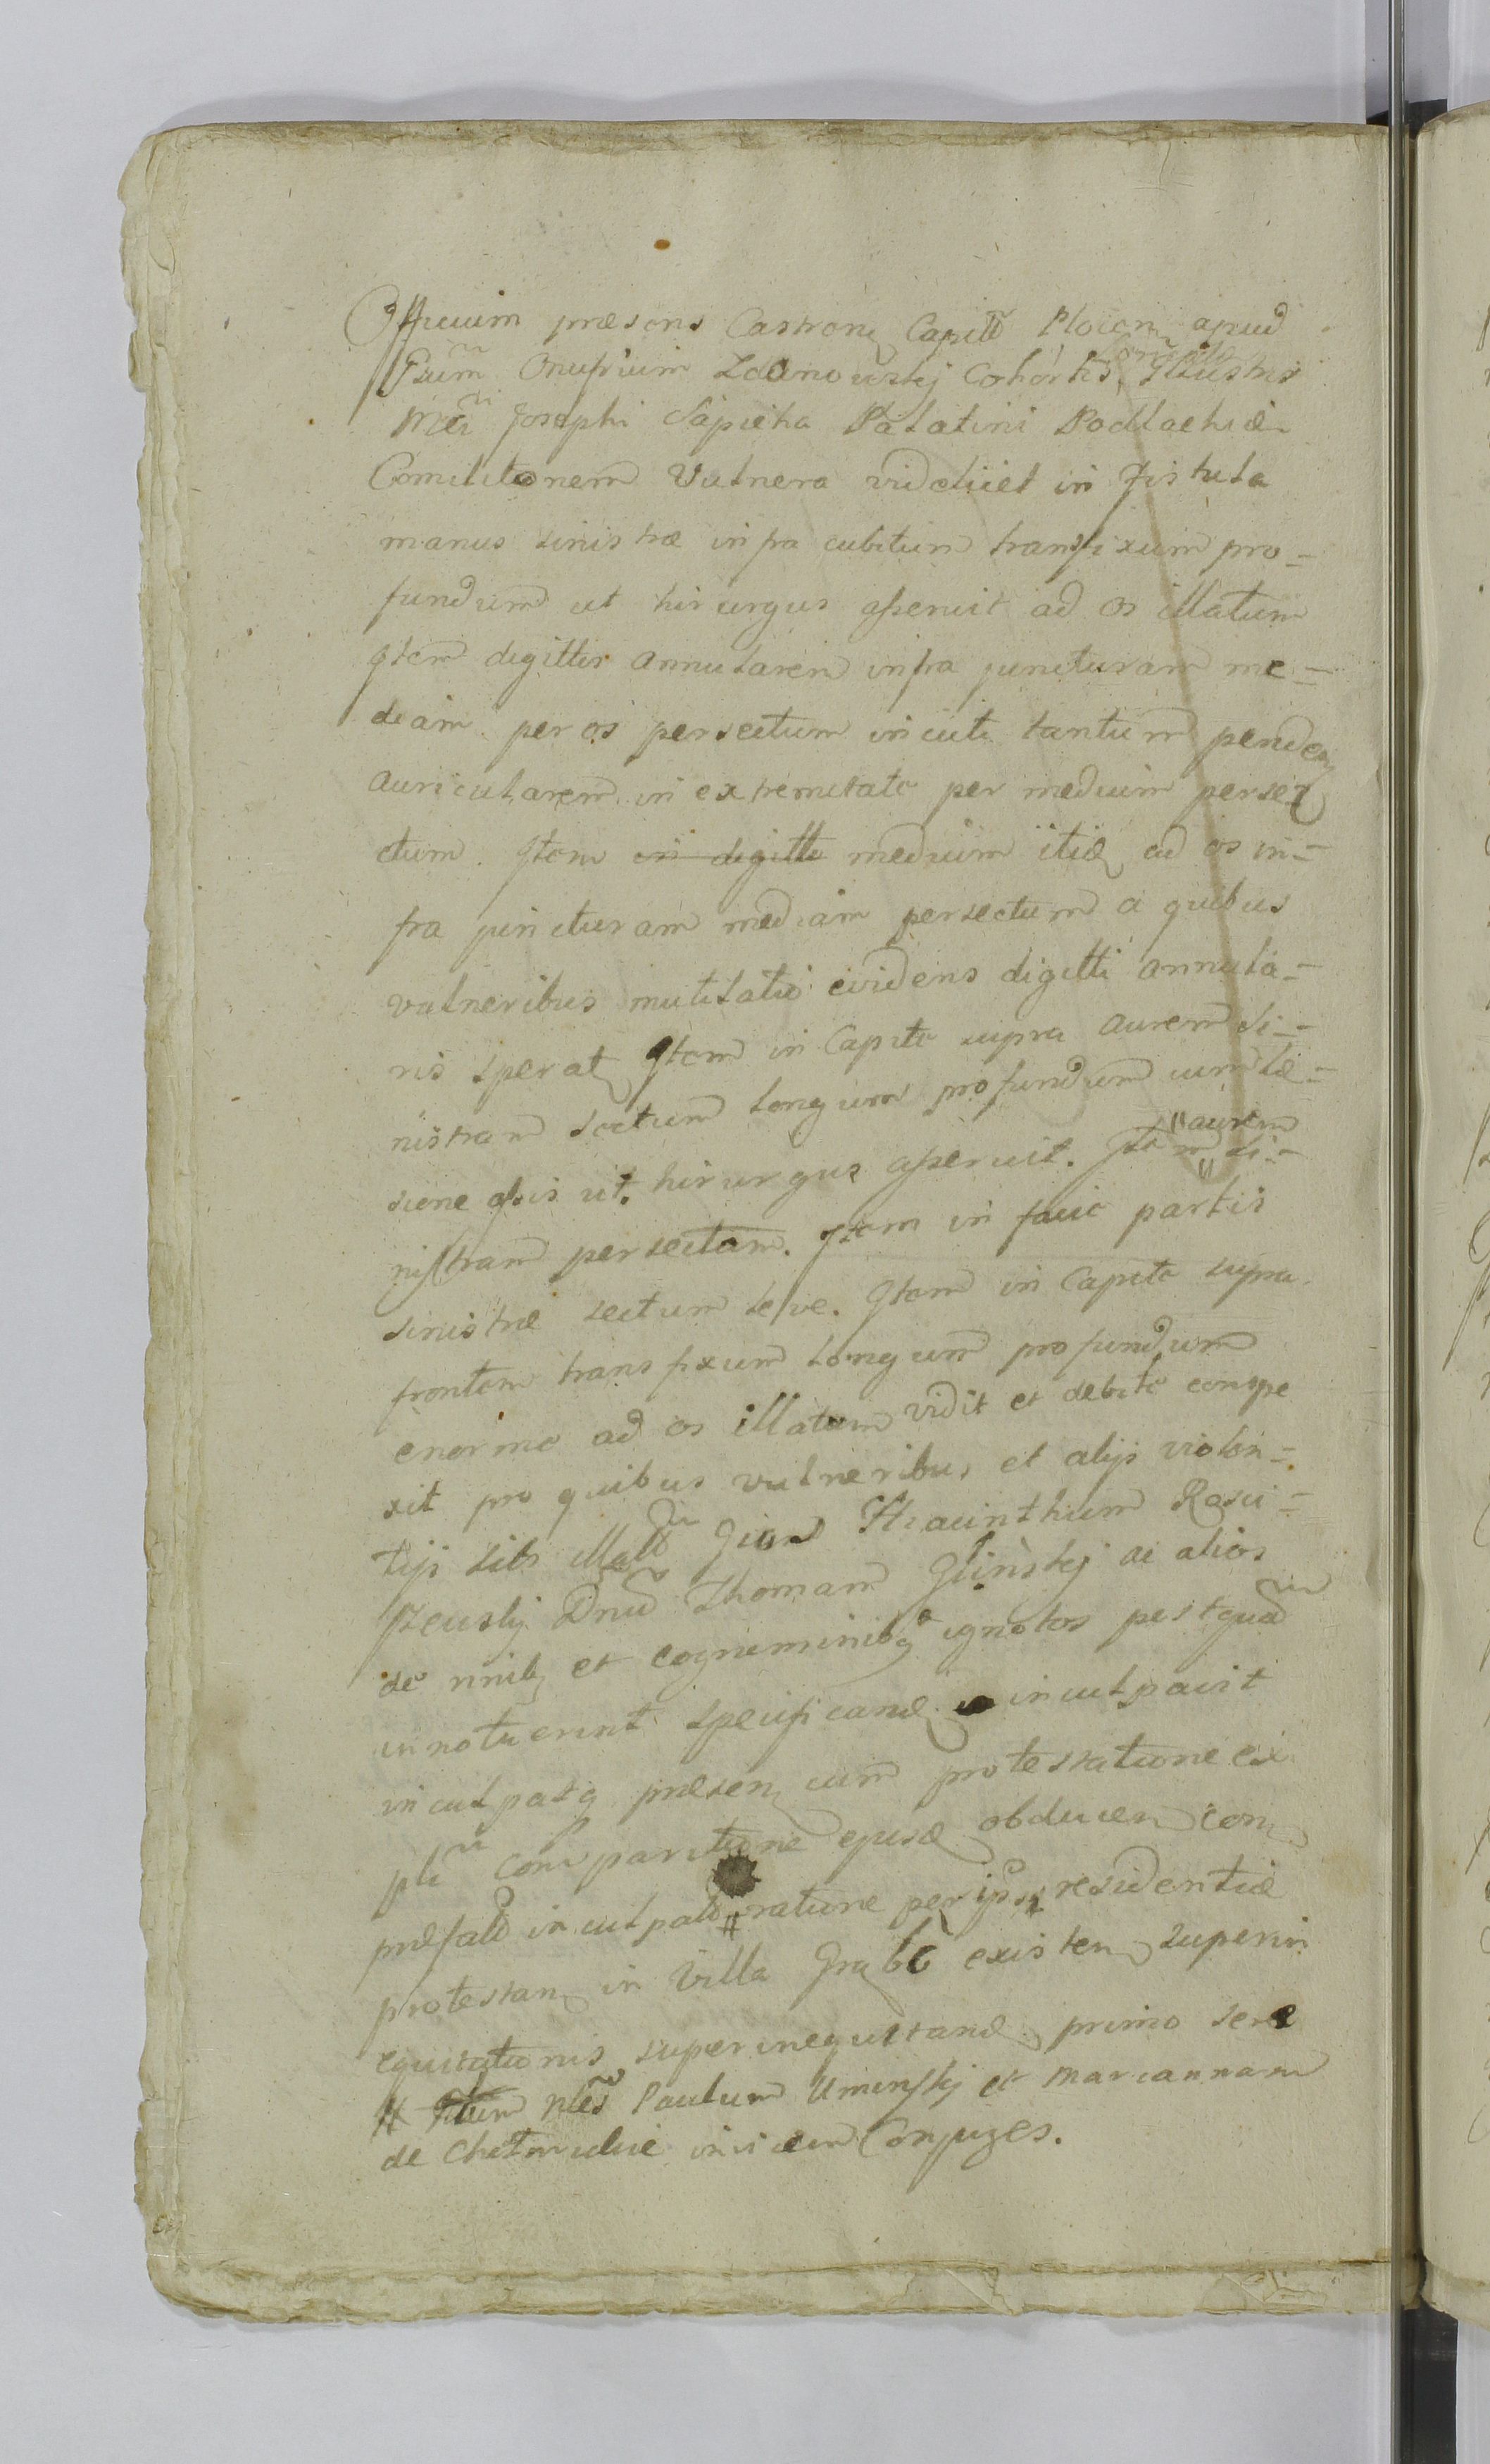 Officium præsens Castren Capitt Plocen apud
Gsum Onufrium Zdanowskj Cohortis Illustris
Mci Josephi Sapieha Palatini Podlachiæ
Comilitonem Vulnera vid eliiet in fistula
manus sinistræ infra cubitum transfixum pro=
fundum ut hirurgus asseruit ad os illatum
Item digittis annularem infra juncturam me=
diam per os persectum in cute tantum penden
auricularem in extremitate per medium perse=
ctum. Item in digitti medium itid ad os in=
fra juncturam mediam persectum a quibus
vulneribus mutilatio evidens digitti annula=
ris sperat Item in Capite supra aurem si=
nistram sectum longum profundum cum læ=
sione ossis ut hirurgus asseruit. Item aurem si=
nistram persectam. Item in facie partis
sinistræ sectum leve. Item in Capite supra
frontem transfixum longum profundum
enorme ad os illatum vidit et debite conspe
xit pro quibus vulneribus et alijs violen=
tijs sibi illatt Gsum Hiacinthum Rosci=
szewskj Dnu Thomam Glinskj ac alios
de nnib et cognominibq ignotos postqua
innotuerint specificand inculpavit
inculpatq præsen cum protestatione ex
pli comparitione ejusd obducen con
præfatt inculpatt # ratione per ipsos residentiæ
protestan in Villa Grąbc existen superin
equitationis superinequitand primo sere
# Nles Paulum Uminskj et Mariannam
de Chełmickie invicem Conjuges.